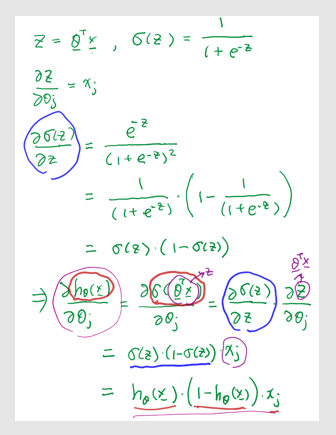 z = θᵀx , σ(z) = 1 / (1 + e^-z)
∂z/∂θj = xj
∂σ(z)/∂z = e^-z / (1 + e^-z)²
= 1/(1 + e^-z) · (1 - 1/(1 + e^-z))
= σ(z) · (1 - σ(z))
θᵀx
⇒ ∂hθ(x)/∂θj = ∂σ(θᵀx)/∂θj → z = ∂σ(z)/∂z · ∂z/∂θj
= σ(z) · (1 - σ(z)) · xj
= hθ(x) · (1 - hθ(x)) · xj